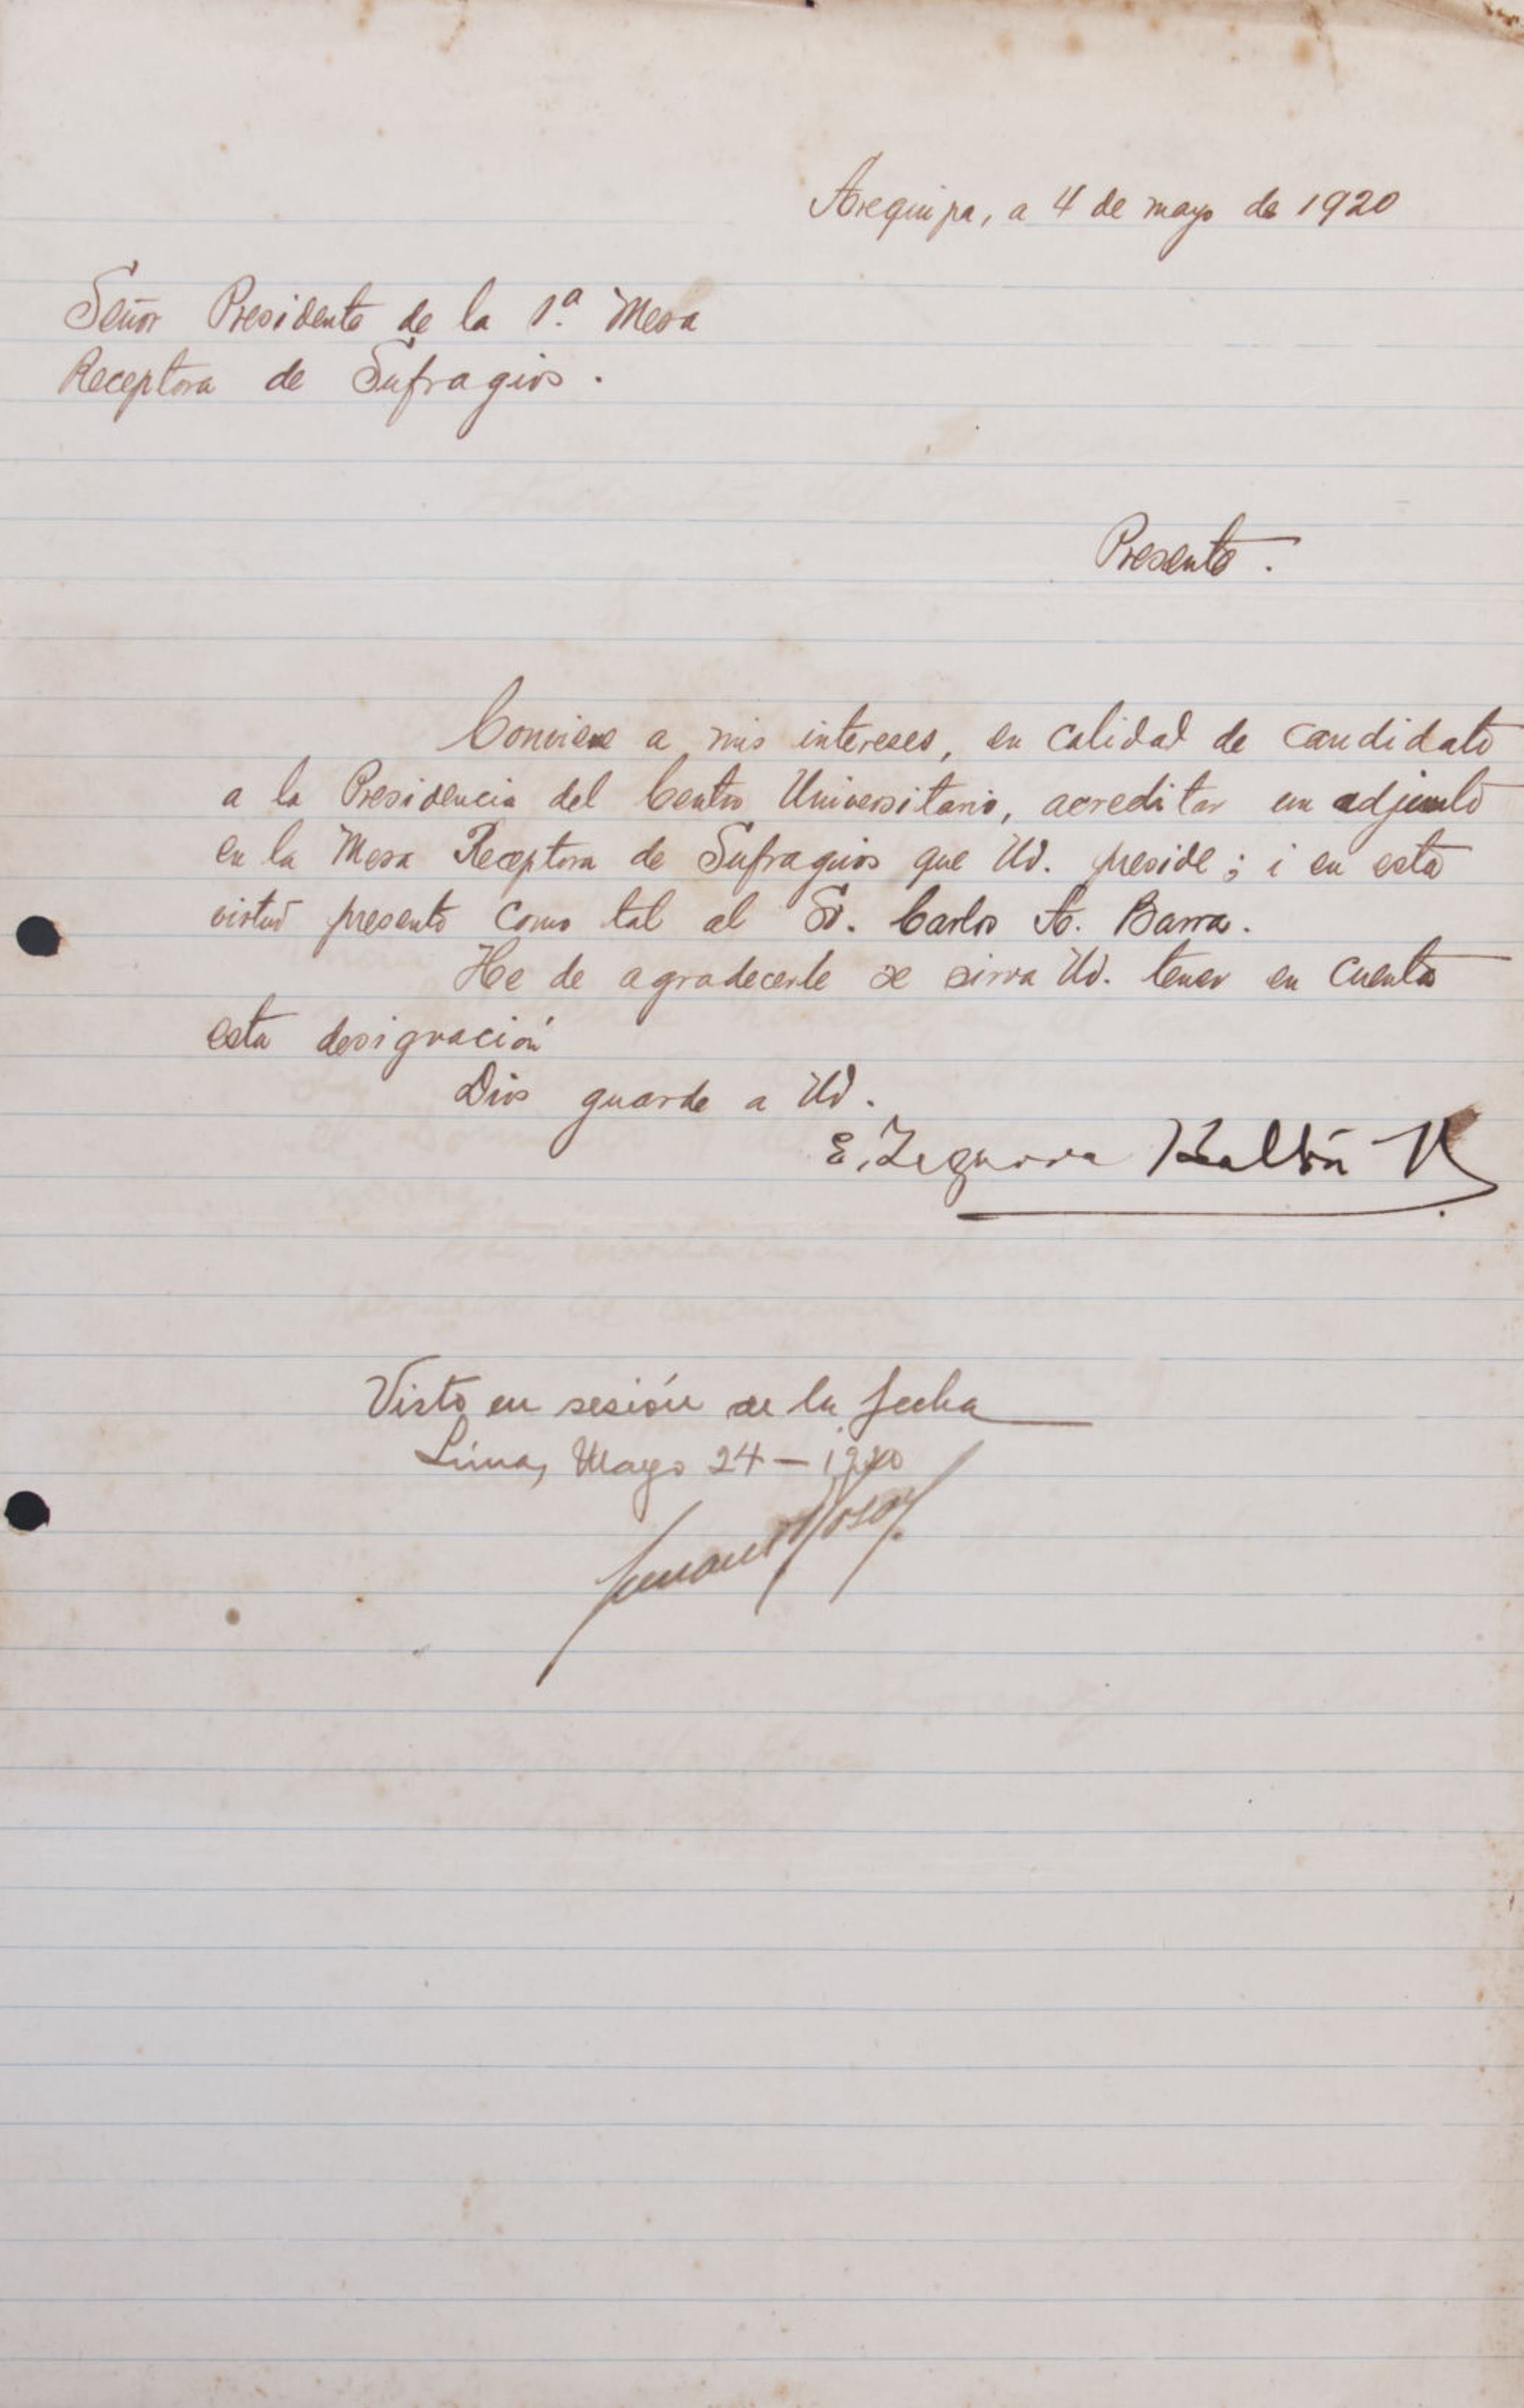 Arequipa, a 4 de mayo de 1920
Señor Presidente de la 1ª Mesa
Receptora de Sufragios.
Presente.
Conviene a mis intereses, en calidad de candidato
a la Presidencia del Centro Universitario, acreditar un adjunto
en la Mesa Receptora de Sufragios que Ud. preside; i en esta
virtud presento como tal al Sr. Carlos A. Barra.
He de agradecerle se sirva Ud. tener en cuenta
esta designación
Dios guarde a Ud.
E. Zegarra
Visto en sesión de la fecha
Lima, Mayo 24 - 1920